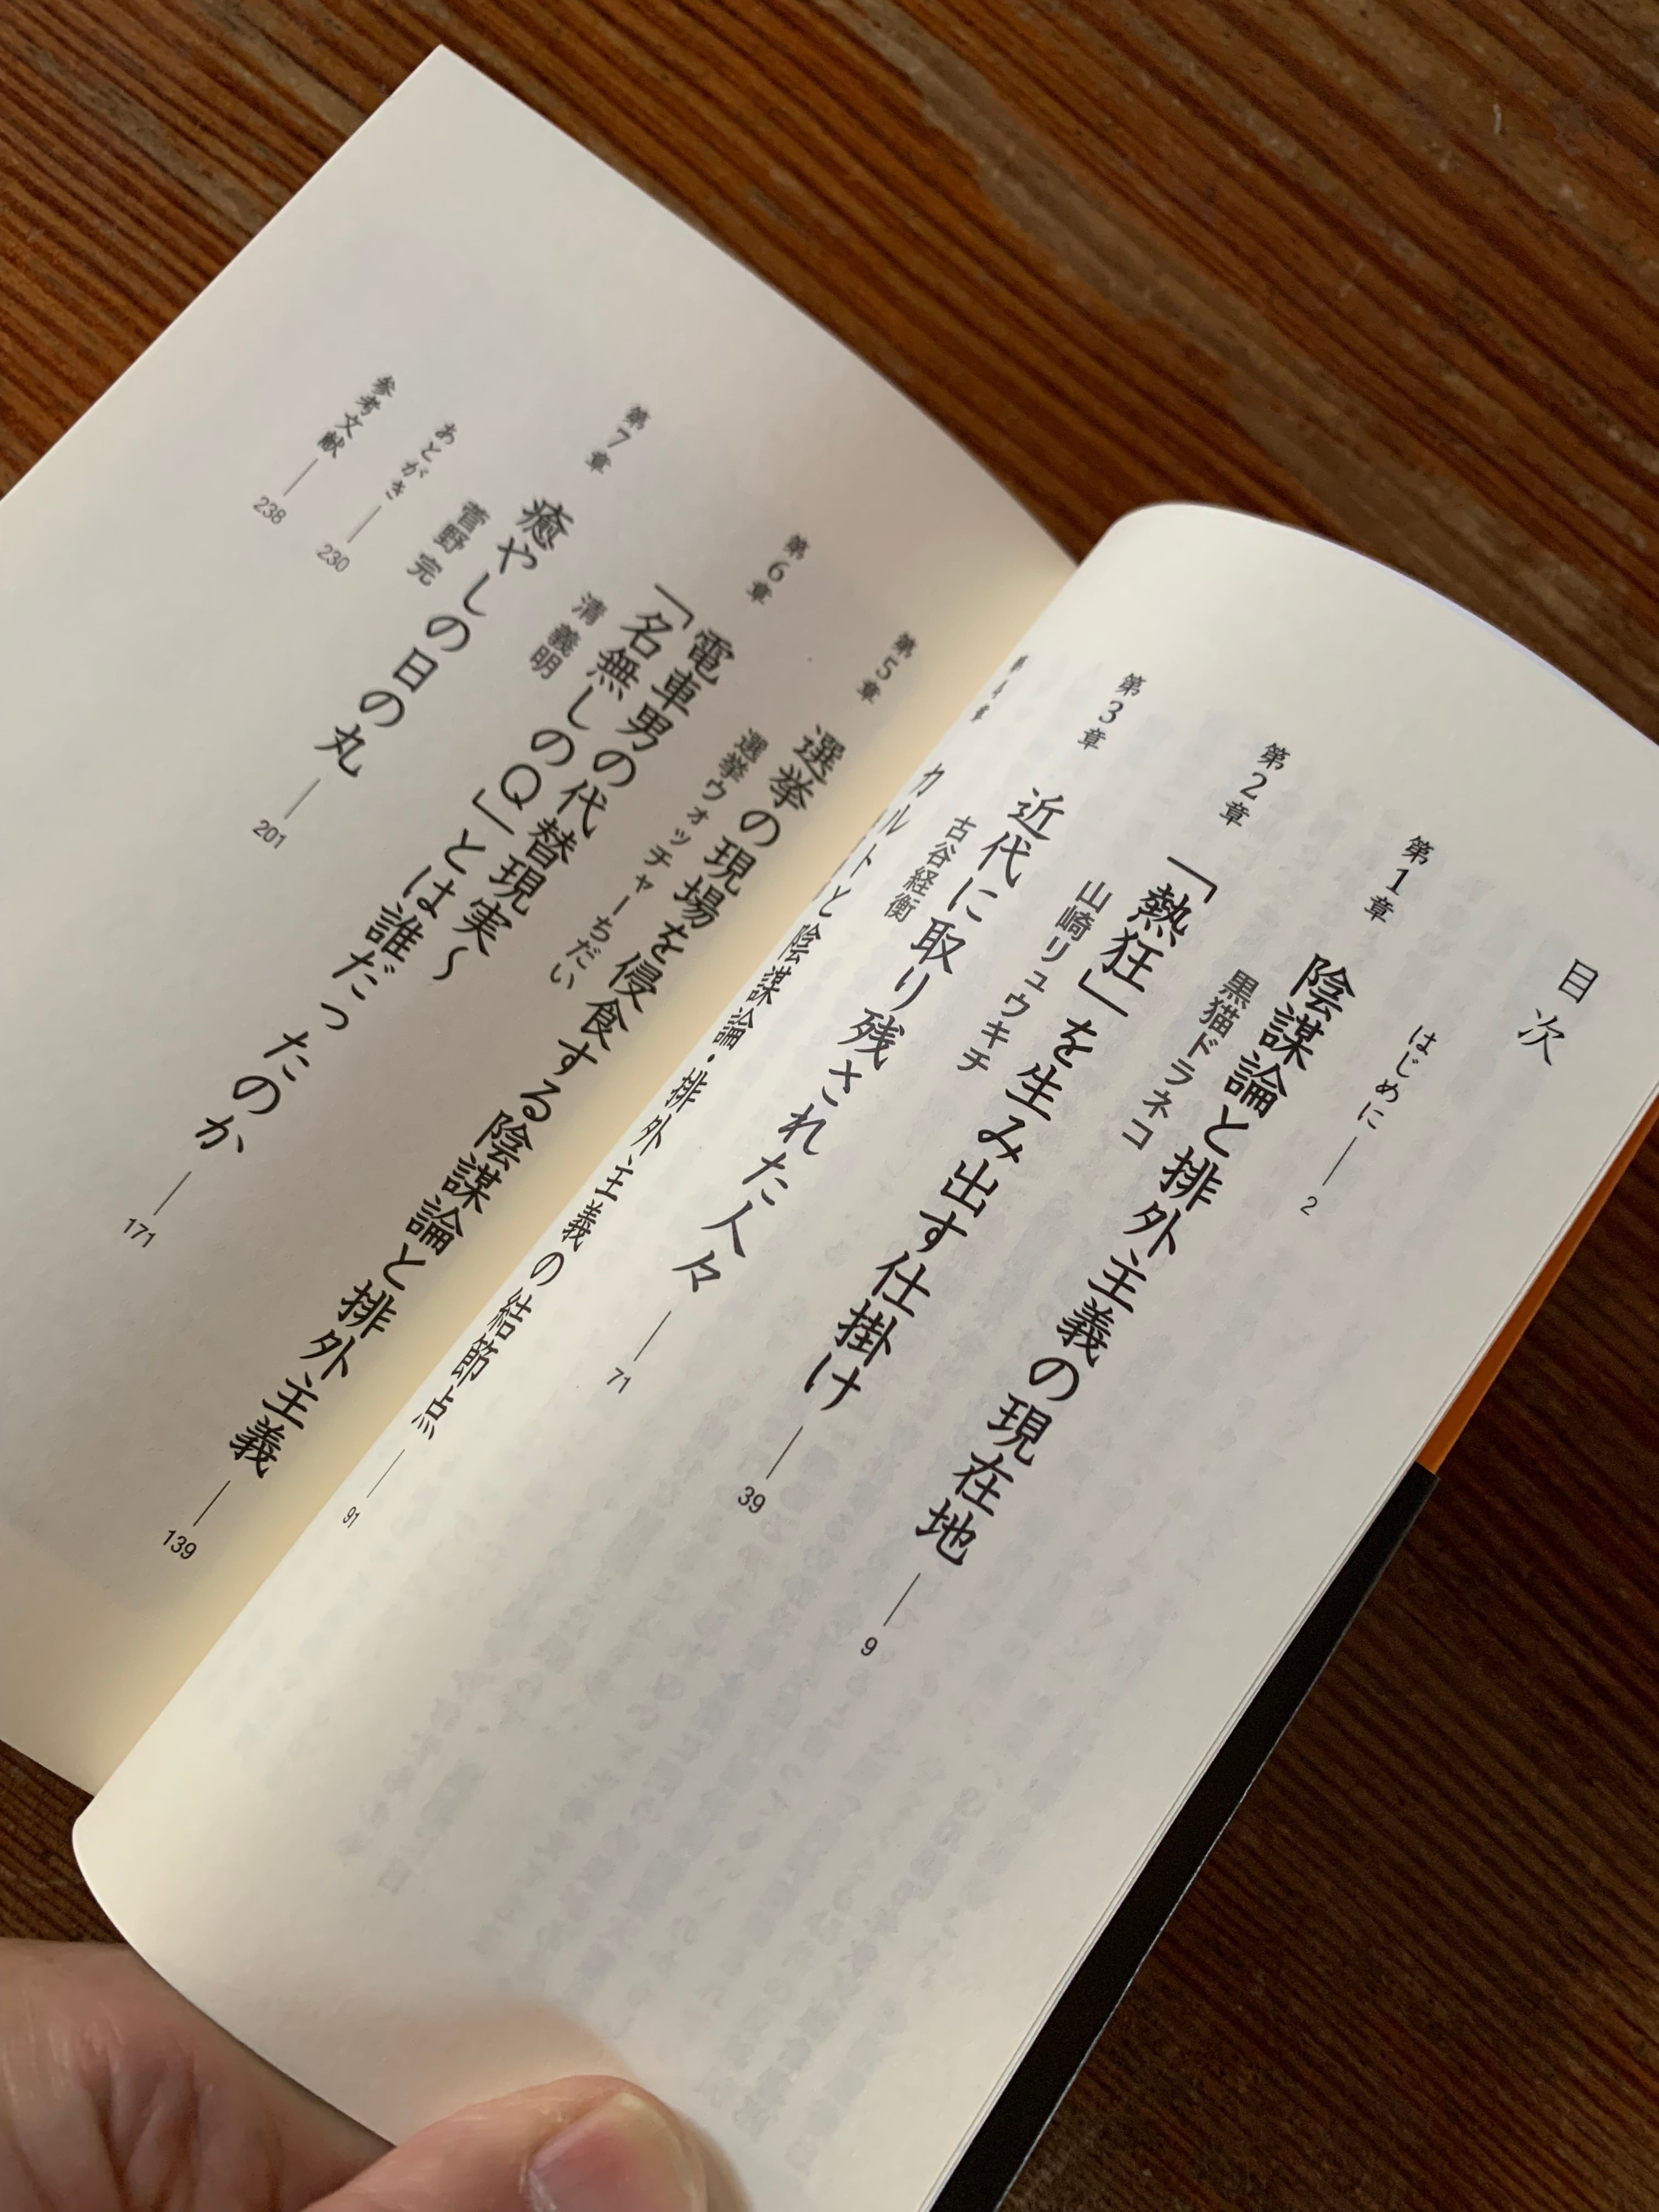 目次
はじめに――2
第1章
陰謀論と排外主義の現在地――9
黒猫ドラネコ
第2章
「熱狂」を生み出す仕掛け――39
山崎リュウキチ
第3章
近代に取り残された人々――71
古谷経衡
第4章
カルトと陰謀論・排外主義の結節点――91
第5章
選挙の現場を侵食する陰謀論と排外主義――139
選挙ウォッチャーちだい
第6章
電車男の代替現実〜
「名無しのQ」とは誰だったのか――171
清 義明
第7章
癒やしの日の丸――201
菅野 完
あとがき――230
参考文献――238